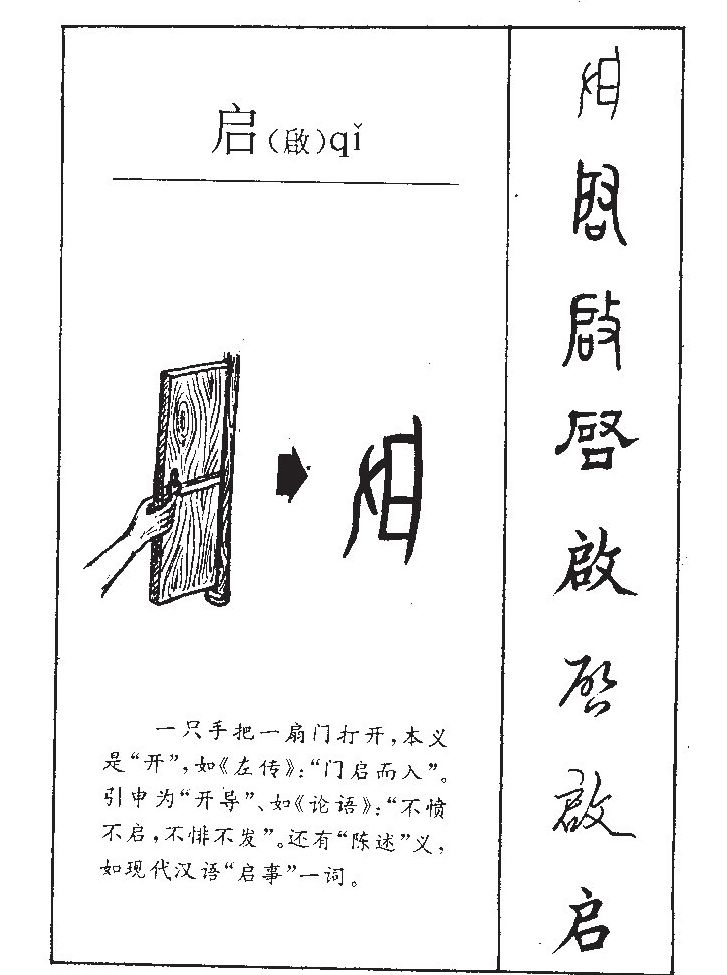 启(啟)qǐ
一只手把一扇门打开,本义
是“开”,如《左传》:“门启而入”。
引申为“开导”、如《论语》:“不愤
不启,不悱不发”。还有“陈述”义,
如现代汉语“启事”一词。
啟
啓
啟
启